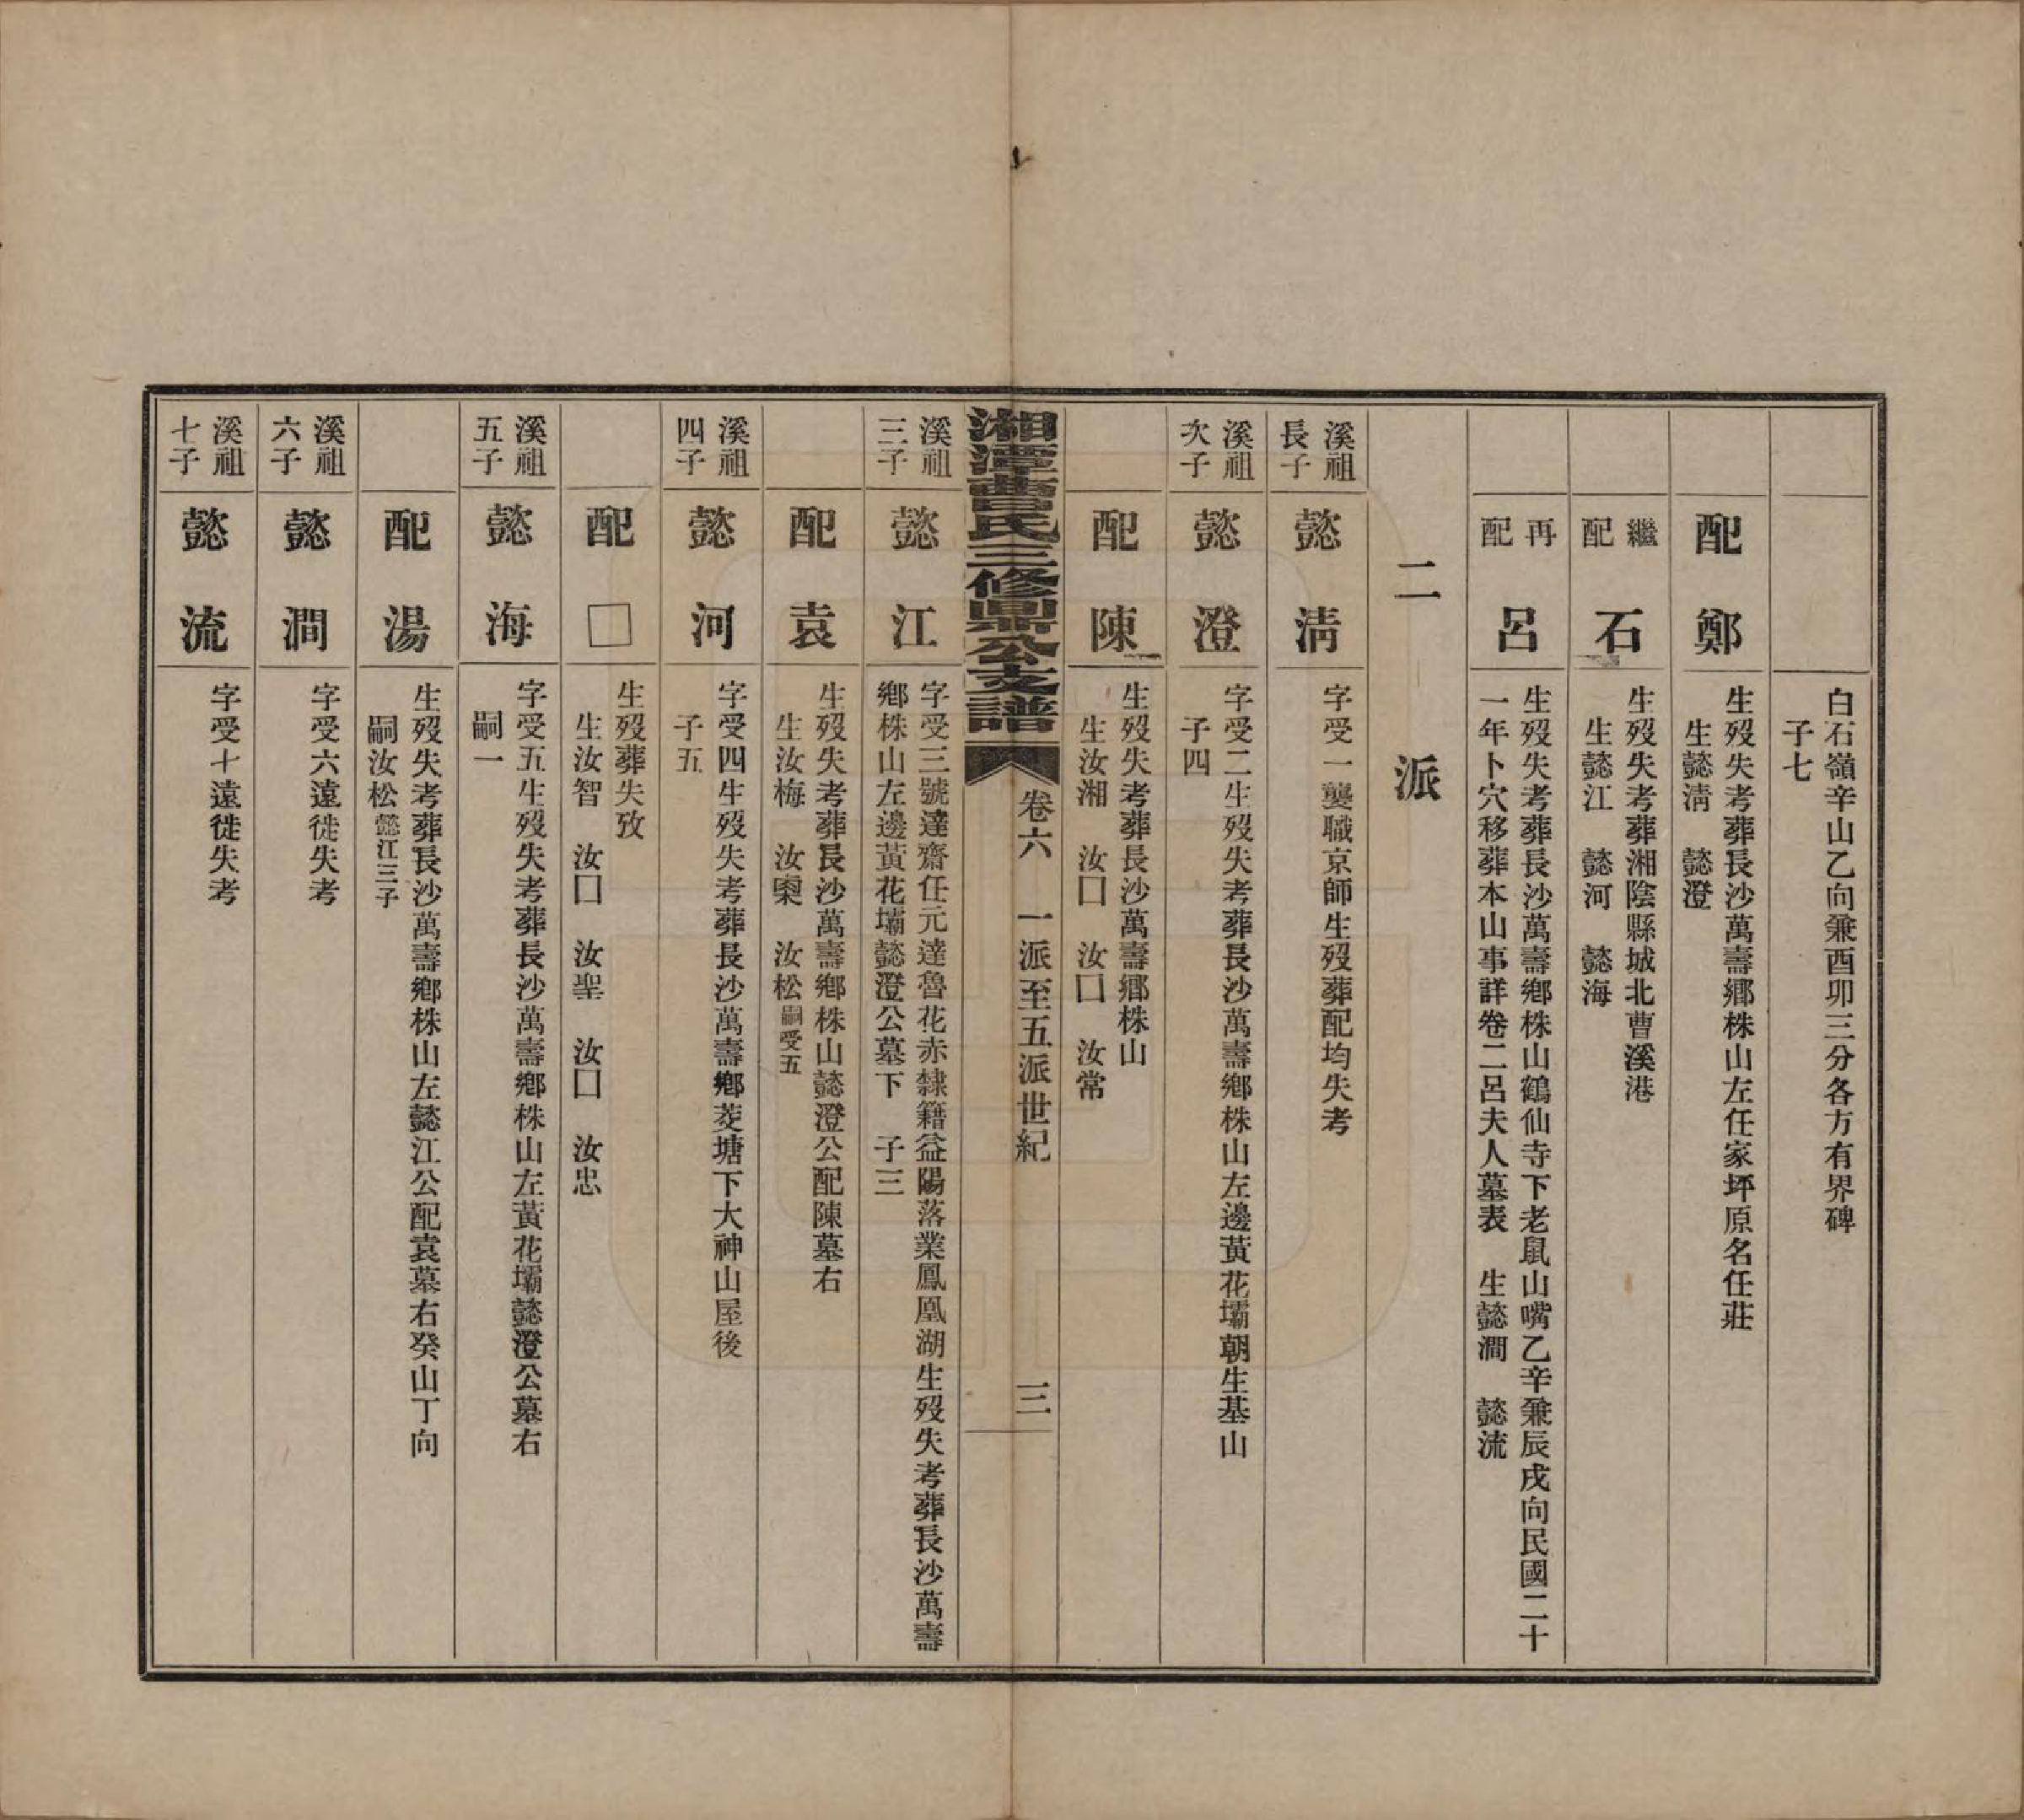 白石嶺辛山乙向兼酉卯三分各方有界碑
子七
配鄭
生歿失考葬長沙萬壽鄉株山左任家坪原名任莊
生懿淸　懿澄
繼配
石
生歿失考葬湘陰縣城北曹溪港
生懿江　懿河　懿海
再配
呂
生歿失考葬長沙萬壽鄉株山鶴仙寺下老鼠山嘴乙辛兼辰戌向民國二十
一年卜穴移葬本山事詳卷二呂夫人墓表　生懿澗　懿流
二派
溪祖長子
懿淸
字受一襲職京師生歿葬配均失考
溪祖次子
懿澄
字受二生歿失考葬長沙萬壽鄉株山左邊黃花壩朝生基山
子四
配陳
生歿失考葬長沙萬壽鄉株山
生汝湘　汝囗　汝囗　汝常
湘潭曹氏三修鼎公支譜
卷六　一派至五派世紀
三
溪祖三子
懿江
字受三號達齋任元達魯花赤隸籍益陽落業鳳凰湖生歿失考葬長沙萬壽
鄉株山左邊黃花壩懿澄公墓下　子三
配袁
生歿失考葬長沙萬壽鄉株山懿澄公配陳墓右
生汝梅　汝㮚　汝松嗣受五
溪祖四子
懿河
字受四生歿失考葬長沙萬壽鄉茭塘下大神山屋後
子五
配□
生歿葬失攷
生汝智　汝囗　汝聖　汝囗　汝忠
溪祖五子
懿海
字受五生歿失考葬長沙萬壽鄉株山左黃花壩懿澄公墓右
嗣一
配湯
生歿失考葬長沙萬壽鄉株山左懿江公配袁墓右癸山丁向
嗣汝松懿江三子
溪祖六子
懿澗
字受六遠徙失考
溪祖七子
懿流
字受十遠徙失考